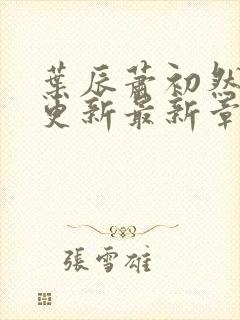 葉辰蕭初然
更新最新章
張雪雄